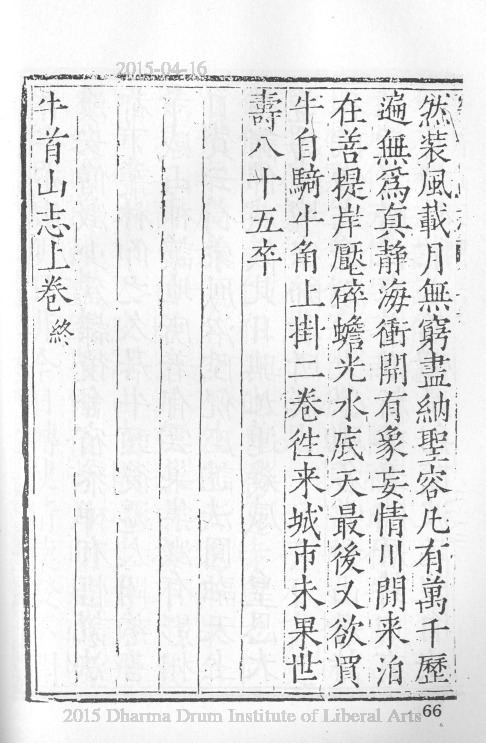 2015-04-16
然装風載月無窮盡納聖容凡有萬千歷
遍無為真静海衝開有象妄情川閒来泊
在菩提岸壓碎蟾光水底天最後又欲買
牛自騎牛角上掛一卷徃来城市未果世
壽八十五卒
牛首山志上卷終
66
2015 Dharma Drum Institute of Liberal Arts